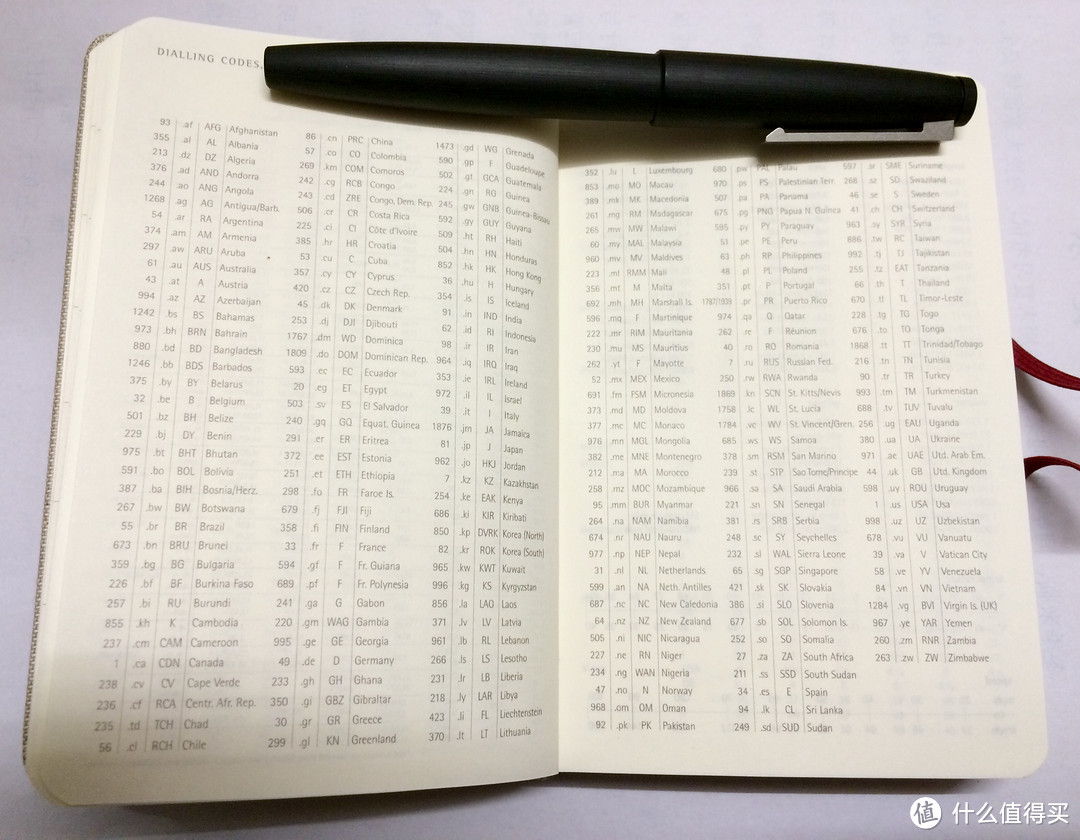 DIALLING CODES.
93 .af AFG Afghanistan
355 .al AL Albania
213 .dz DZ Algeria
376 .ad AND Andorra
244 .ao ANG Angola
1268 .ag AG Antigua/Barb.
54 .ar RA Argentina
374 .am AM Armenia
297 .aw ARU Aruba
61 .au AUS Australia
43 .at A Austria
994 .az AZ Azerbaijan
1242 .bs BS Bahamas
973 .bh BRN Bahrain
880 .bd BD Bangladesh
1246 .bb BDS Barbados
375 .by BY Belarus
32 .be B Belgium
501 .bz BH Belize
229 .bj DY Benin
975 .bt BHT Bhutan
591 .bo BOL Bolivia
387 .ba BIH Bosnia/Herz.
267 .bw BW Botswana
55 .br BR Brazil
673 .bn BRU Brunei
359 .bg BG Bulgaria
226 .bf BF Burkina Faso
257 .bi RU Burundi
855 .kh K Cambodia
237 .cm CAM Cameroon
1 .ca CDN Canada
238 .cv CV Cape Verde
236 .cf RCA Centr. Afr. Rep.
235 .td TCH Chad
56 .cl RCH Chile
86 .cn PRC China
57 .co CO Colombia
269 .km COM Comoros
242 .cg RCB Congo
243 .cd ZRE Congo, Dem. Rep.
506 .cr CR Costa Rica
225 .ci CI Côte d'Ivoire
385 .hr HR Croatia
53 .cu C Cuba
357 .cy CY Cyprus
420 .cz CZ Czech Rep.
45 .dk DK Denmark
253 .dj DJI Djibouti
1767 .dm WD Dominica
1809 .do DOM Dominican Rep.
593 .ec EC Ecuador
20 .eg ET Egypt
503 .sv ES El Salvador
240 .gq GQ Equat. Guinea
291 .er ER Eritrea
372 .ee EST Estonia
251 .et ETH Ethiopia
298 .fo FR Faroe Is.
679 .fj FJI Fiji
358 .fi FIN Finland
33 .fr F France
594 .gf F Fr. Guiana
689 .pf F Fr. Polynesia
241 .ga G Gabon
220 .gm WAG Gambia
995 .ge GE Georgia
49 .de D Germany
233 .gh GH Ghana
350 .gi GBZ Gibraltar
30 .gr GR Greece
299 .gl KN Greenland
1473 .gd WG Grenada
590 .gp F Guadeloupe
502 .gt GCA Guatemala
224 .gn RG Guinea
245 .gw GNB Guinea-Bissau
592 .gy GUY Guyana
509 .ht RH Haiti
504 .hn HN Honduras
852 .hk HK Hong Kong
36 .hu H Hungary
354 .is IS Iceland
91 .in IND India
62 .id RI Indonesia
98 .ir IR Iran
964 .iq IRQ Iraq
353 .ie IRL Ireland
972 .il IL Israel
39 .it I Italy
1876 .jm JA Jamaica
81 .jp J Japan
962 .jo HKJ Jordan
7 .kz KZ Kazakhstan
254 .ke EAK Kenya
686 .ki KIR Kiribati
850 .kp DVRK Korea (North)
82 .kr ROK Korea (South)
965 .kw KWT Kuwait
996 .kg KS Kyrgyzstan
856 .la LAO Laos
371 .lv LV Latvia
961 .lb RL Lebanon
266 .ls LS Lesotho
231 .lr LB Liberia
218 .ly LAR Libya
423 .li FL Liechtenstein
370 .lt LT Lithuania
352 .lu L Luxembourg
853 .mo MO Macau
389 .mk MK Macedonia
261 .mg RM Madagascar
265 .mw MW Malawi
60 .my MAL Malaysia
960 .mv MV Maldives
223 .ml RMM Mali
356 .mt M Malta
692 .mh MH Marshall Is.
596 .mq F Martinique
222 .mr RIM Mauritania
230 .mu MS Mauritius
262 .yt F Mayotte
52 .mx MEX Mexico
691 .fm FSM Micronesia
373 .md MD Moldova
377 .mc MC Monaco
976 .mn MGL Mongolia
382 .me MNE Montenegro
212 .ma MA Morocco
258 .mz MOC Mozambique
95 .mm BUR Myanmar
264 .na NAM Namibia
674 .nr NAU Nauru
977 .np NEP Nepal
31 .nl NL Netherlands
599 .an NA Neth. Antilles
687 .nc NC New Caledonia
64 .nz NZ New Zealand
505 .ni NIC Nicaragua
227 .ne RN Niger
234 .ng WAN Nigeria
47 .no N Norway
968 .om OM Oman
92 .pk PK Pakistan
680 .pw PAL Palau
970 .ps PS Palestinian Terr.
507 .pa PA Panama
675 .pg PNG Papua N. Guinea
595 .py PY Paraguay
51 .pe PE Peru
63 .ph RP Philippines
48 .pl PL Poland
351 .pt P Portugal
1787/1939 .pr PR Puerto Rico
974 .qa Q Qatar
262 .re F Réunion
40 .ro RO Romania
7 .ru RUS Russian Fed.
250 .rw RWA Rwanda
1869 .kn SCN St. Kitts/Nevis
1758 .lc WL St. Lucia
1784 .vc WV St. Vincent/Gren.
685 .ws WS Samoa
378 .sm RSM San Marino
239 .st STP Sao Tome/Principe
966 .sa SA Saudi Arabia
221 .sn SN Senegal
381 .rs SRB Serbia
248 .sc SY Seychelles
232 .sl WAL Sierra Leone
65 .sg SGP Singapore
421 .sk SK Slovakia
386 .si SLO Slovenia
677 .sb SOL Solomon Is.
252 .so SO Somalia
27 .za ZA South Africa
211 .ss SSD South Sudan
34 .es E Spain
94 .lk CL Sri Lanka
249 .sd SUD Sudan
597 .sr SME Suriname
268 .sz SD Swaziland
46 .se S Sweden
41 .ch CH Switzerland
963 .sy SYR Syria
886 .tw RC Taiwan
992 .tj TJ Tajikistan
255 .tz EAT Tanzania
66 .th T Thailand
670 .tl TL Timor-Leste
228 .tg TG Togo
676 .to TO Tonga
1868 .tt TT Trinidad/Tobago
216 .tn TN Tunisia
90 .tr TR Turkey
993 .tm TM Turkmenistan
688 .tv TUV Tuvalu
256 .ug EAU Uganda
380 .ua UA Ukraine
971 .ae UAE Utd. Arab Em.
44 .uk GB Utd. Kingdom
598 .uy ROU Uruguay
1 .us USA Usa
998 .uz UZ Uzbekistan
678 .vu VU Vanuatu
39 .va V Vatican City
58 .ve YV Venezuela
84 .vn VN Vietnam
1284 .vg BVI Virgin Is. (UK)
967 .ye YAR Yemen
260 .zm RNR Zambia
263 .zw ZW Zimbabwe
值 什么值得买